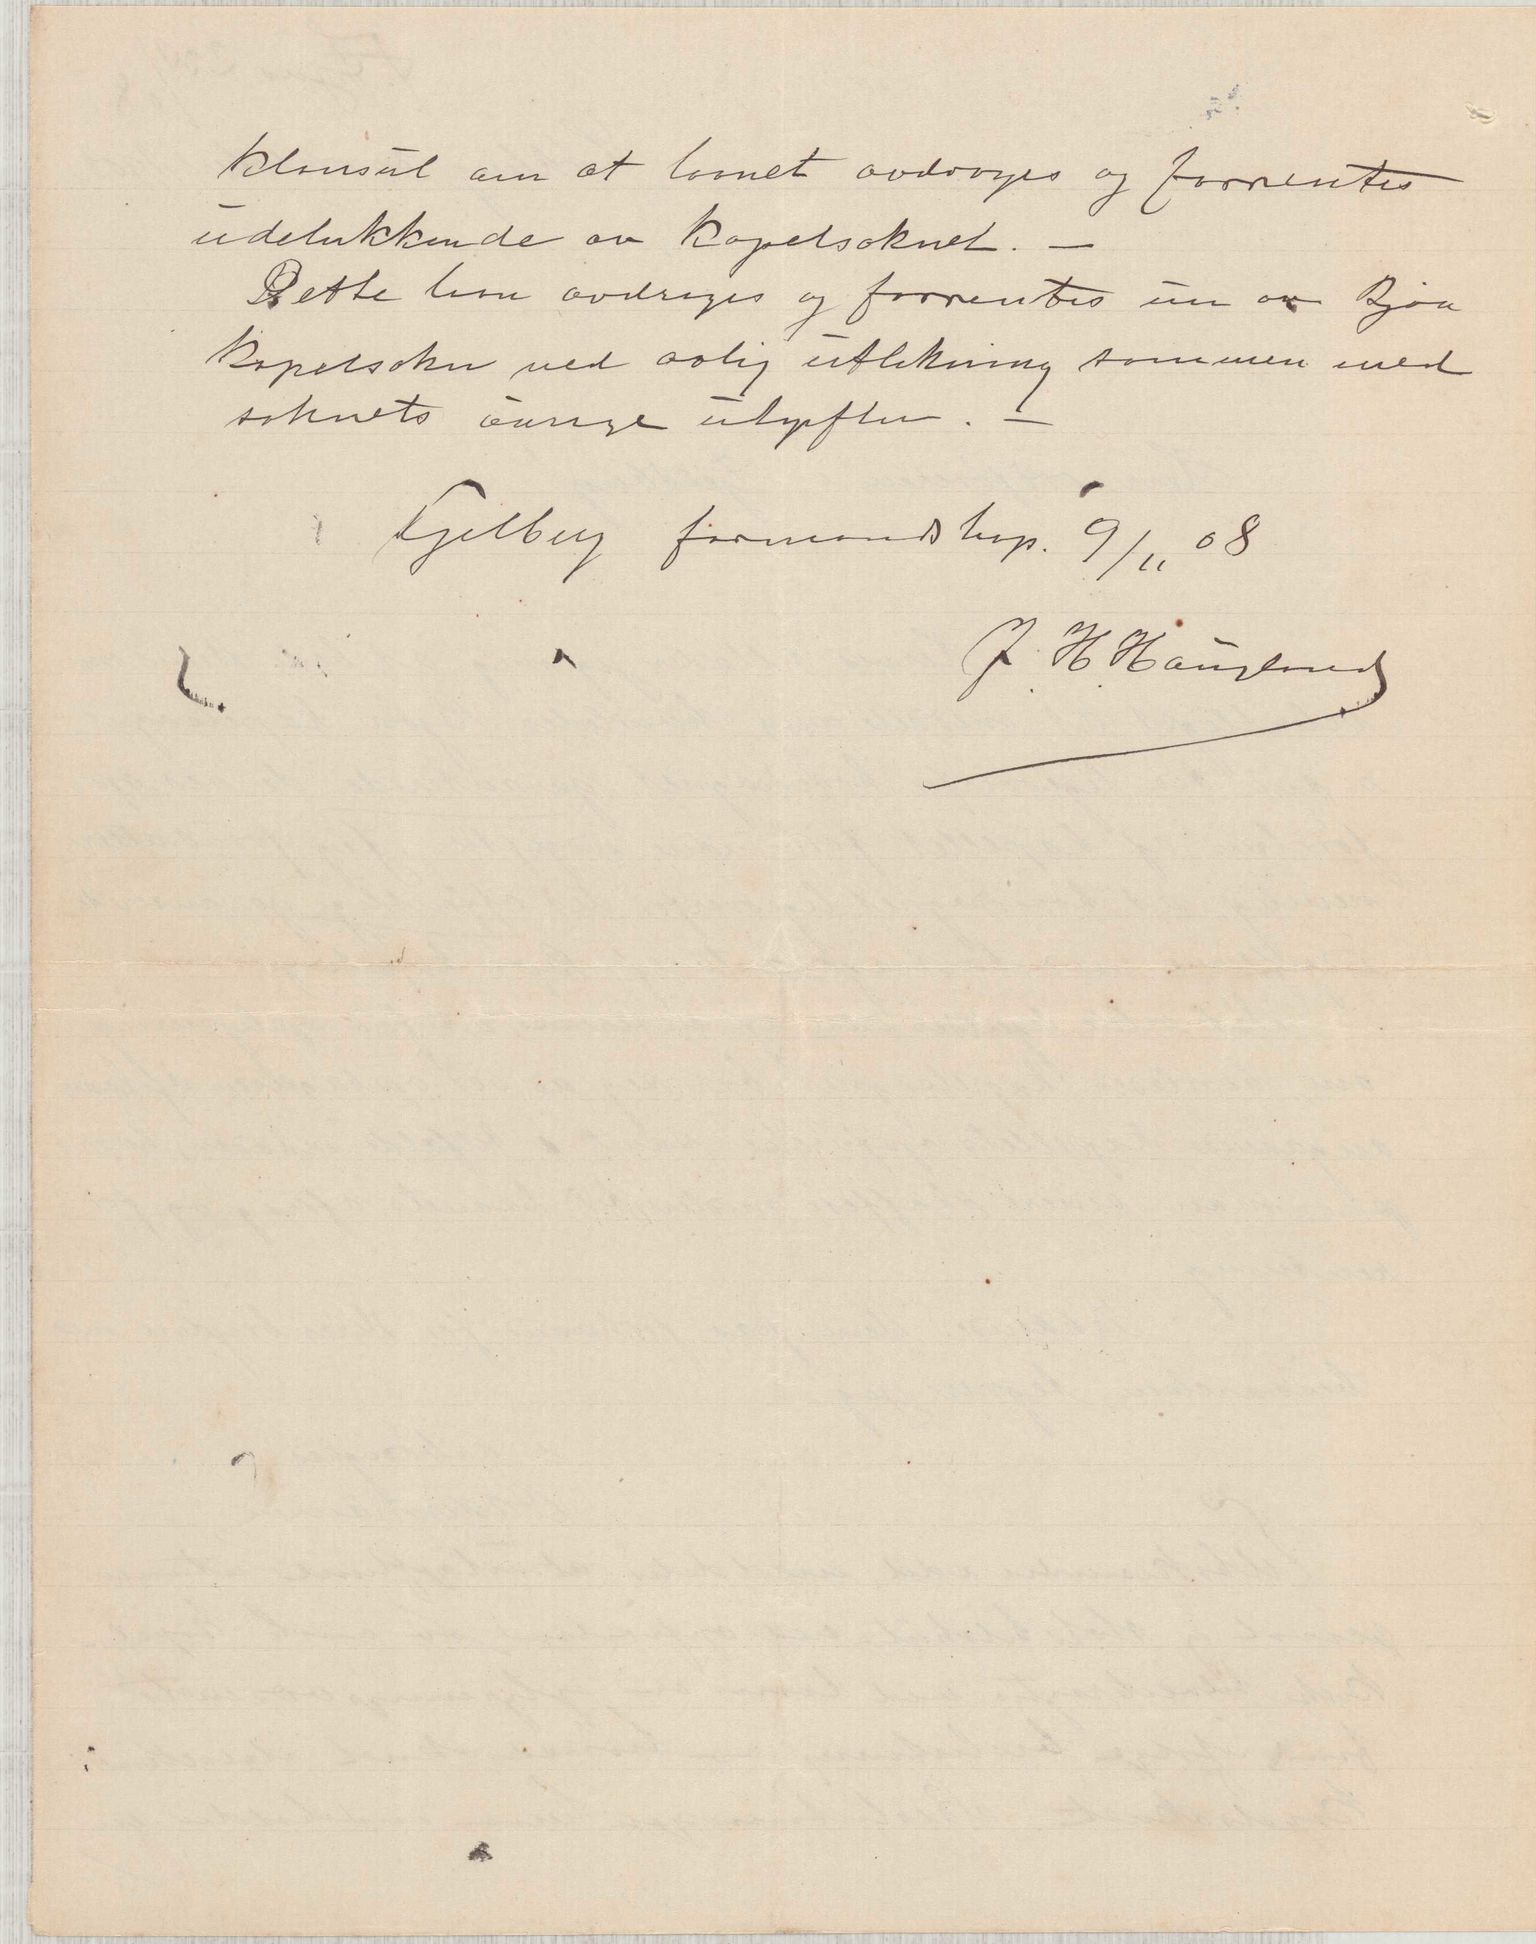 klausul om at laanet avdrages og forrentes
udelukkende av kapelsoknet. —
Dette laan avdrages og forrentes un av Bjoa
kapelsokn ved aarlig utlikning sammen med
soknets øvrige utgifter. —
Fjelberg formandskap. 9/11 08
J. H. Haugland